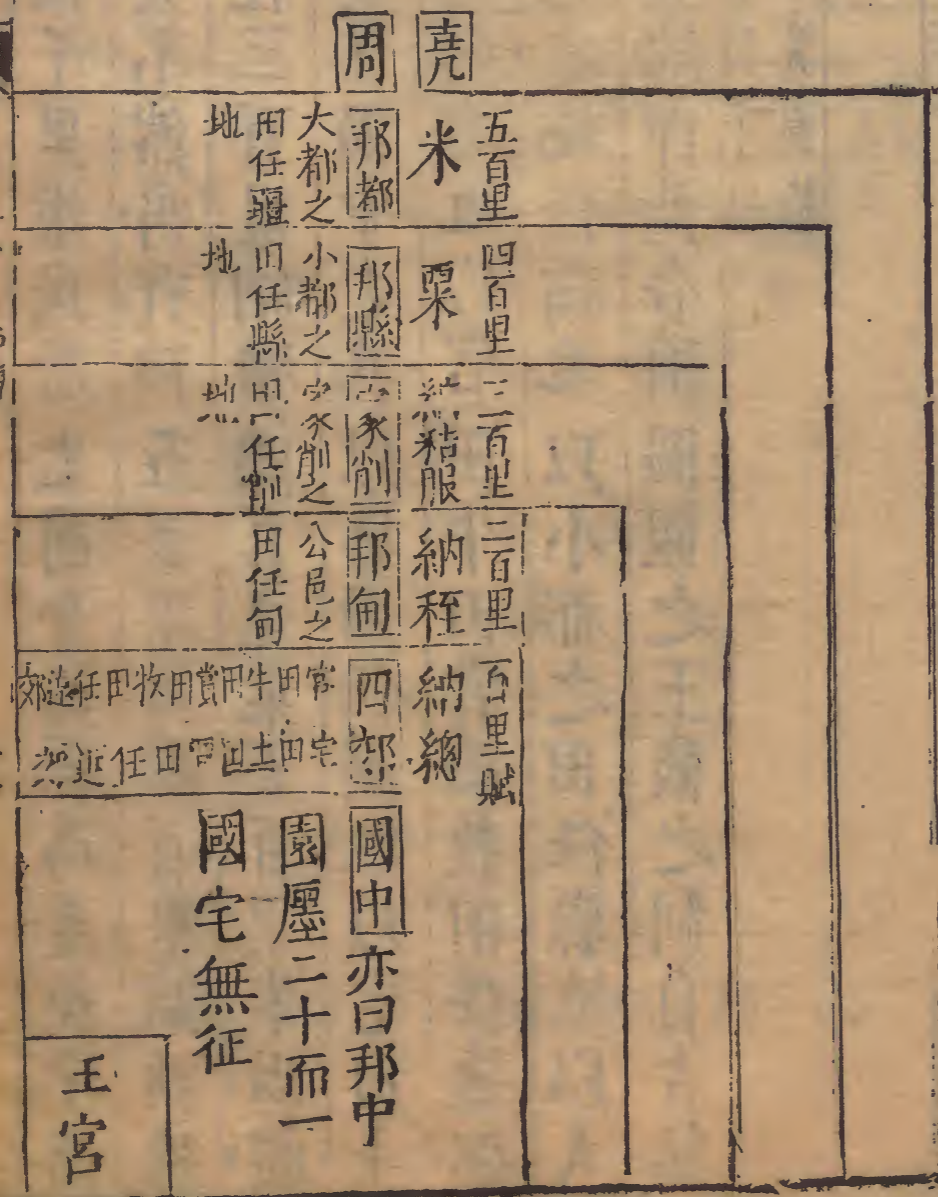 堯
周
五百里
米
邦都
大都之
田任疆
地
四百里
粟
邦縣
小都之
田任縣
地
三百里
納秸服
家削
家削之
田任削
地
二百里
納秷
邦甸
公邑之
田任甸
百里賦
納總
四郊
官田牛田賞田牧田任遠郊
宅田土田賈田任近郊
國中亦曰邦中
園廛二十而一
國宅無征
王宮